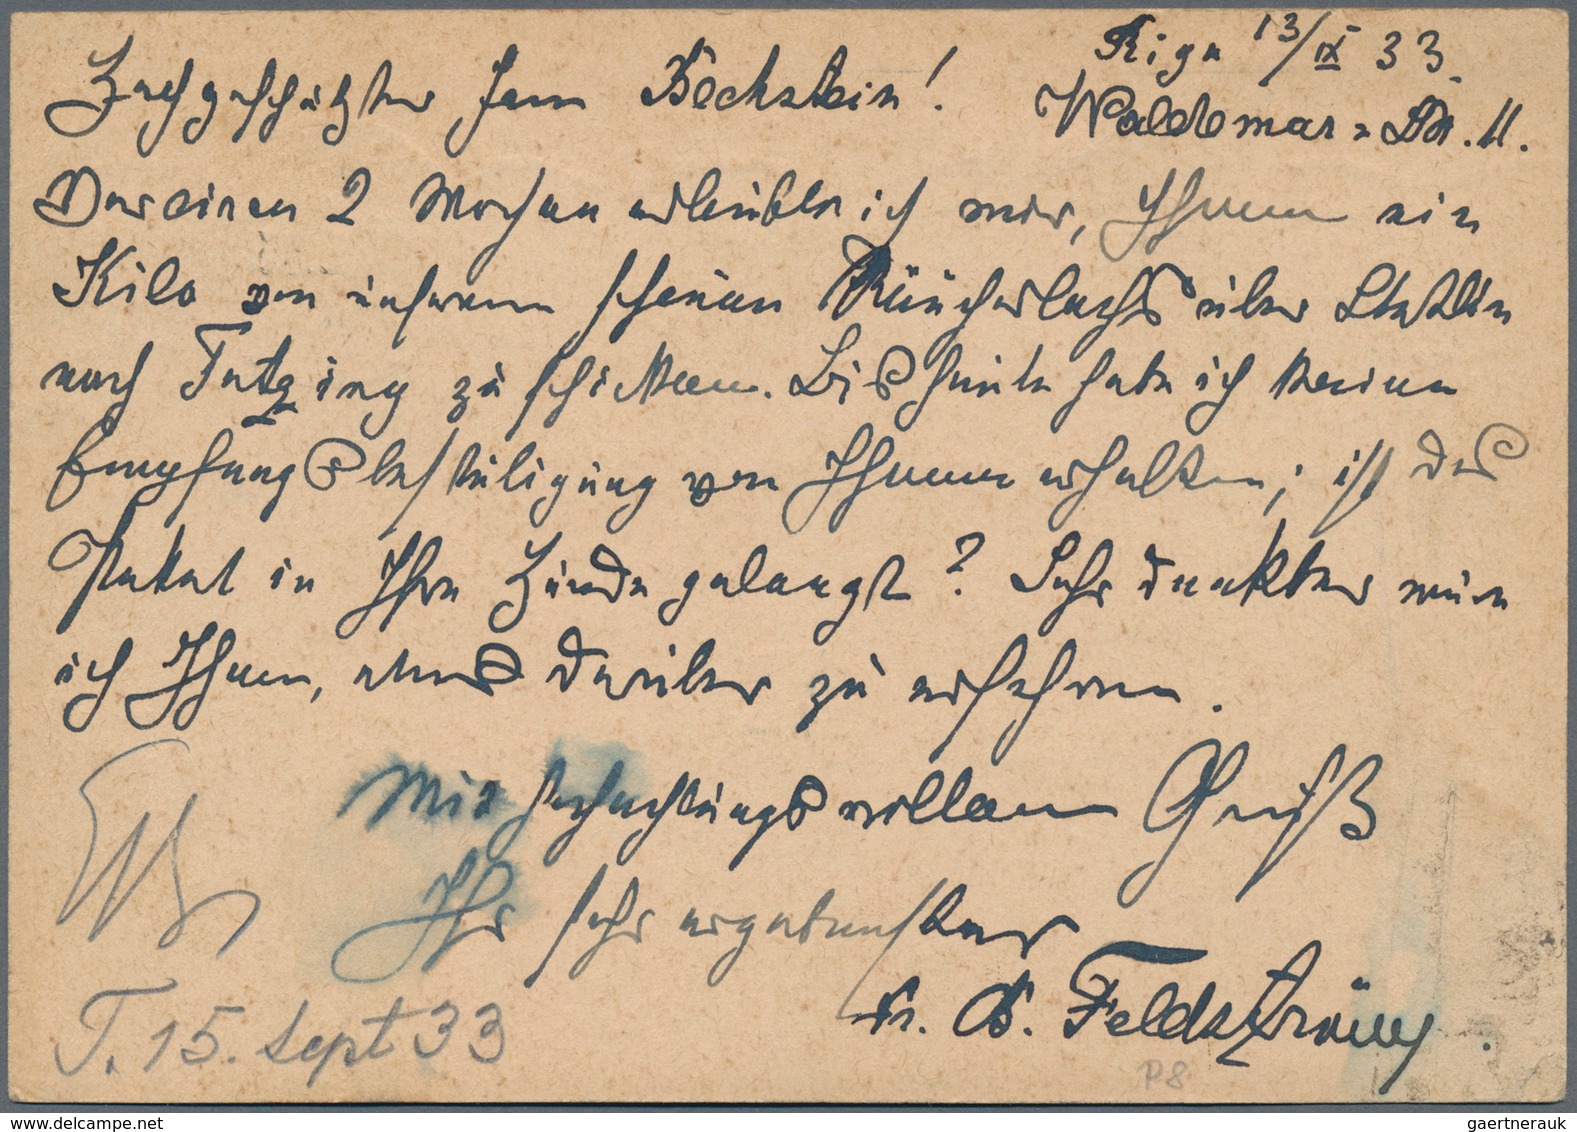 Riga 13/IX 33.
Hochgeschätzter Herr Bechstein!
Waldemar-Str. 11.
Vor einen 2 Wochen erlaubte ich mir, Ihnen ein
Kilo von unserem schönen Räucherlachs über Stettin
nach Tutzing zu schicken. Bis heute habe ich keine
Empfangsbestätigung von Ihnen erhalten; ist das
Paket in Ihre Hände gelangt? Sehr dankbar wäre
ich Ihnen, etwas darüber zu erfahren.
Mit hochachtungsvollem Gruß
Ihr sehr ergebenster
Dr. B. Feldstrauch.
T. 15. Sept 33
P8
gaertnerauk